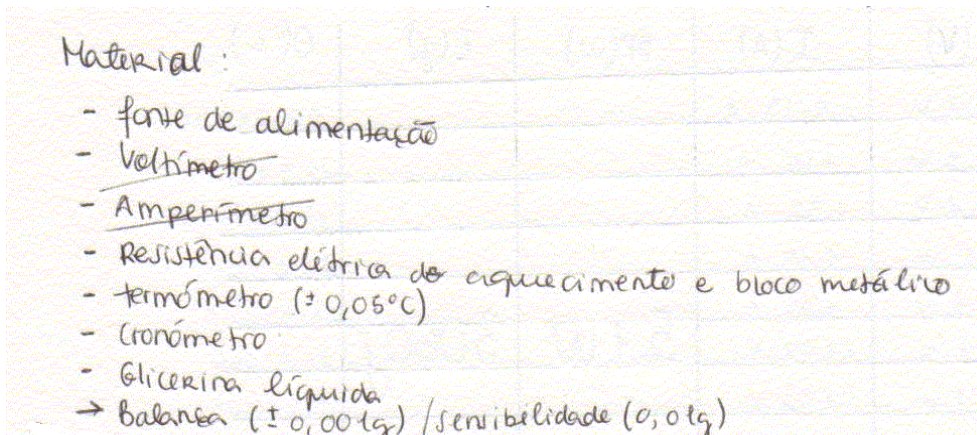 Material :
- fonte de alimentação
- Voltímetro
- Amperímetro
- Resistência elétrica de aquecimento e bloco metálico
- termómetro (± 0,05°C)
- Cronómetro
- Glicerina líquida
→ Balança (± 0,001g) / sensibilidade (0,01g)